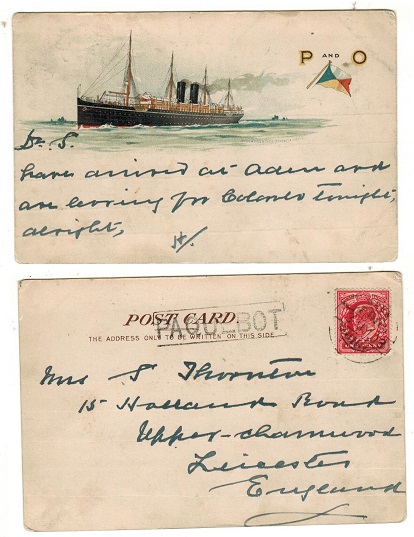 P AND O
Dr. S.
have arrived at Aden and
are leaving for Colombo tonight,
alright,
H/.
POST CARD
PAQUEBOT
THE ADDRESS ONLY TO BE WRITTEN ON THIS SIDE
Mrs S Thornton
15 Holland Road
Upper-charnwood
Leicester
England